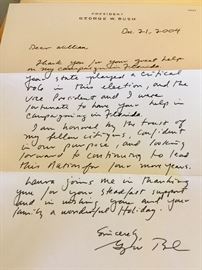 PRESIDENT
GEORGE W. BUSH
Dec. 21, 2004
Dear
Thank you for your great help
on my campaign in Florida.
Your state played a critical
role in this election, and the
Vice President and I were
fortunate to have your help in
campaigning in Florida.
I am honored by the trust of
my fellow citizens, confident
in our purpose, and looking
forward to continuing to lead
this nation for four more years.
Laura joins me in thanking
you for your steadfast support
and in wishing you and your
family a wonderful Holiday.
Sincerely,